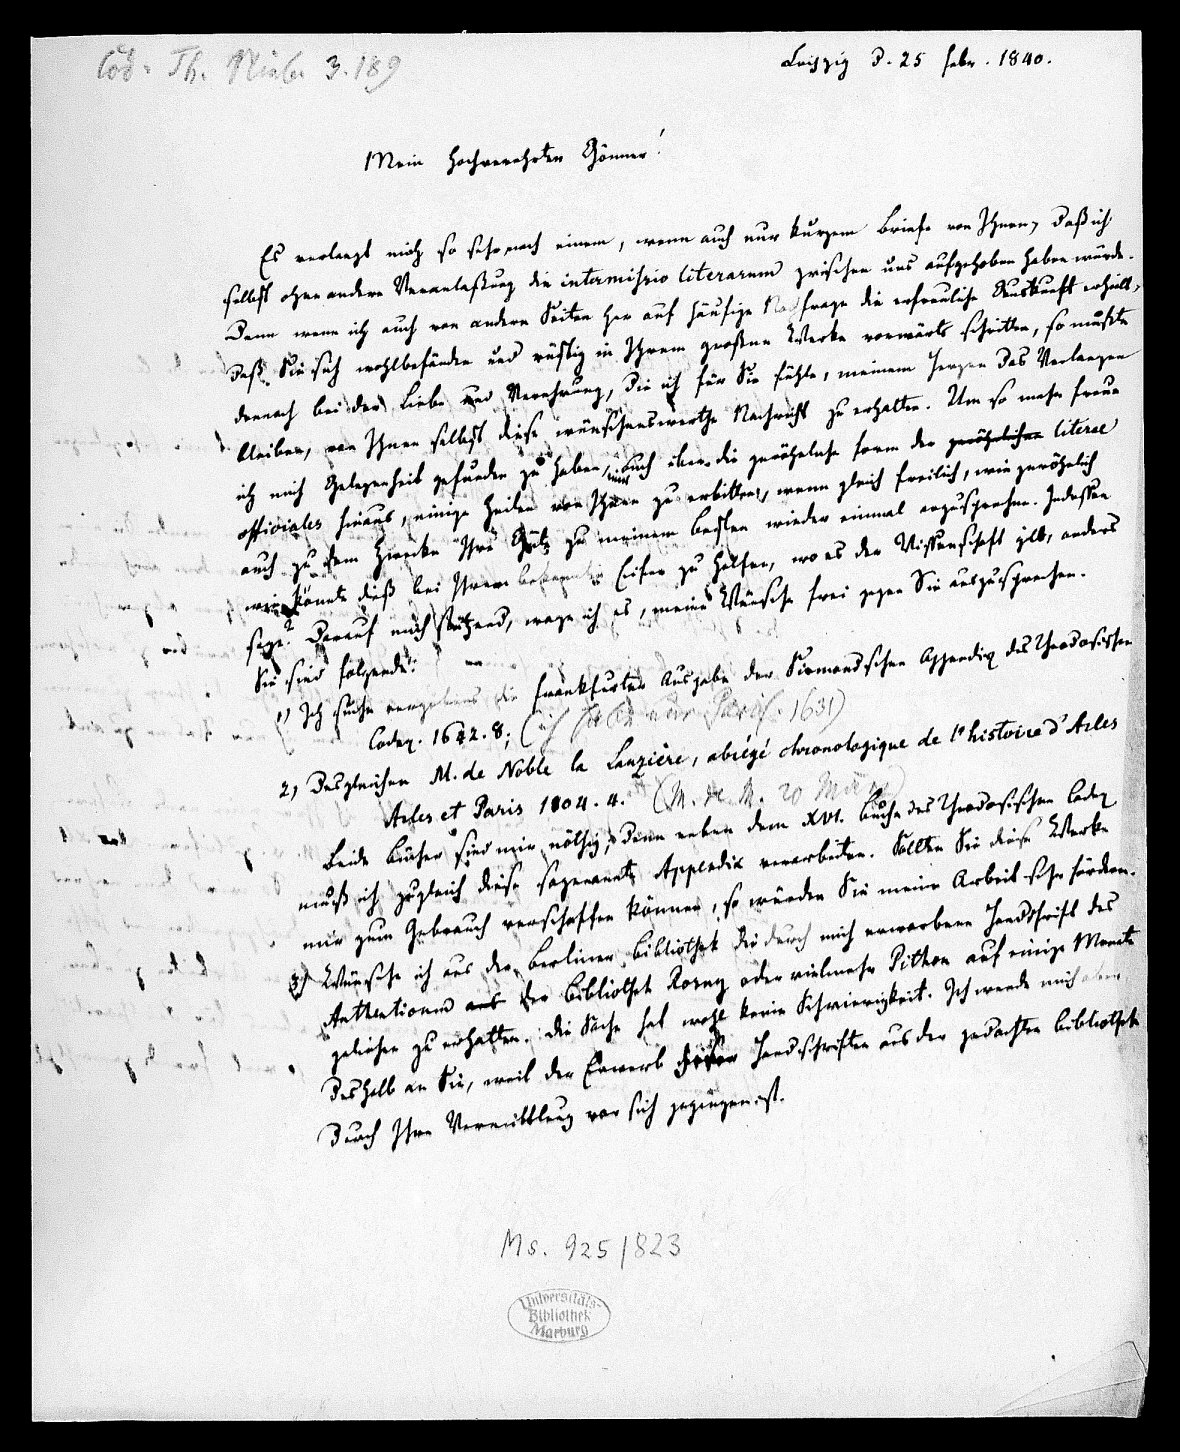 Cod. Th. 3.189
Leipzig d. 25 febr. 1840.
Mein hochverehrter Gönner!
Es verlangt mich so sehr nach einem, wenn auch nur kurzem Briefe von Ihnen, daß ich
selbst ohne andere Veranlaßung die intermissio literarum zwischen uns aufgehoben haben würde.
Denn wenn ich auch von andern Seiten her auf häufige Nachfrage die erfreuliche Auskunft erhielt,
daß Sie sich wohlbefänden und rüstig in Ihrem großen Werke vorwärts schritten, so mußte
dennoch bei der Liebe und Verehrung, die ich für Sie fühle, meinem Herzen das Verlangen
bleiben, von Ihnen selbst diese wünschenswerthe Nachricht zu erhalten. Um so mehr freue
ich mich Gelegenheit gefunden zu haben, auch über die gewöhnliche form der gewöhnlichen literae
officiales hinaus, einige Zeilen von Ihnen zu erbitten, wenn gleich freilich, wie gewöhnlich
auch zu dem Zwecke Ihre Güte zu meinem besten wieder einmal anzusprechen. Indessen
wie könnte dieß bei Ihrem bekannten Eifer zu helfen, wo es der Wissenschaft gilt, anders
seyn? Darauf mich stützend, wage ich es, meine Wünsche frei gegen Sie auszusprechen.
Sie sind folgende:
1) Ich suche vergebens die frankfurter Ausgabe der Sirmondschen Appendix des Theodosischen
Codex. 1642. 8; (ich habe nur Paris. 1631)
2) Desgleichen M. de Noble la Lauzière, abrégé chronologique de l'histoire d'Arles
Arles et Paris 1804. 4. (M. de M. 20 März)
Beide Bücher sind mir nöthig, denn neben dem XVI. Buche des Theodosischen Codex
muß ich zugleich diese sogenannte Appendix verarbeiten. Sollten Sie diese Werke
mir zum Gebrauch verschaffen können, so würden Sie meine Arbeit sehr fördern.
3) Wünsche ich aus der Berliner Bibliothek die durch mich erworbene Handschrift des
Authenticums aus der Bibliothek Rosny oder vielmehr Pithou auf einige Monate
geliehen zu erhalten. Die Sache hat wohl keine Schwierigkeit. Ich wende mich aber
deshalb an Sie, weil der Erwerb dieser Handschriften aus der gedachten Bibliothek
durch Ihre Vermittlung vor sich gegangen ist.
Ms. 925/823
Universitäts-
Bibliothek
Marburg